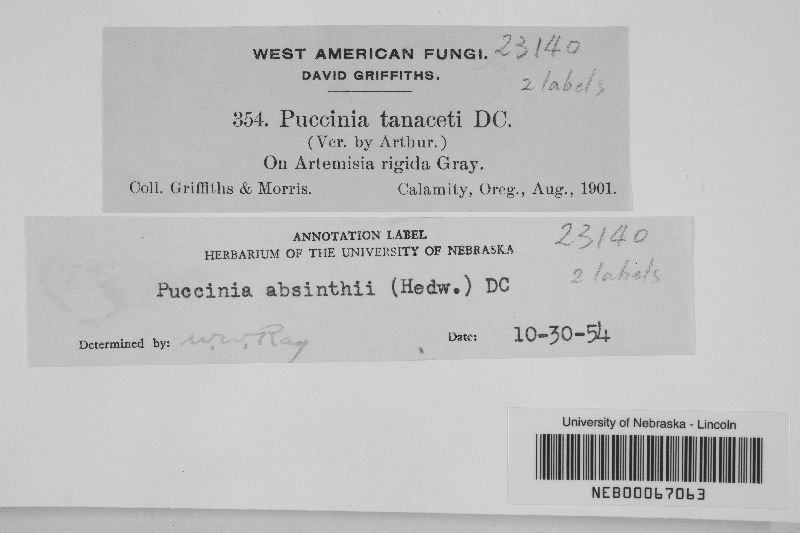 WEST AMERICAN FUNGI. 23140
DAVID GRIFFITHS. 2 labels
354. Puccinia tanaceti DC.
(Ver. by Arthur.)
On Artemisia rigida Gray.
Coll. Griffiths & Morris. Calamity, Oreg., Aug., 1901.
ANNOTATION LABEL 23140
HERBARIUM OF THE UNIVERSITY OF NEBRASKA
2 labels
Puccinia absinthii (Hedw.) DC
Determined by: W.W. Ray Date: 10-30-54
University of Nebraska - Lincoln
NEB00067063